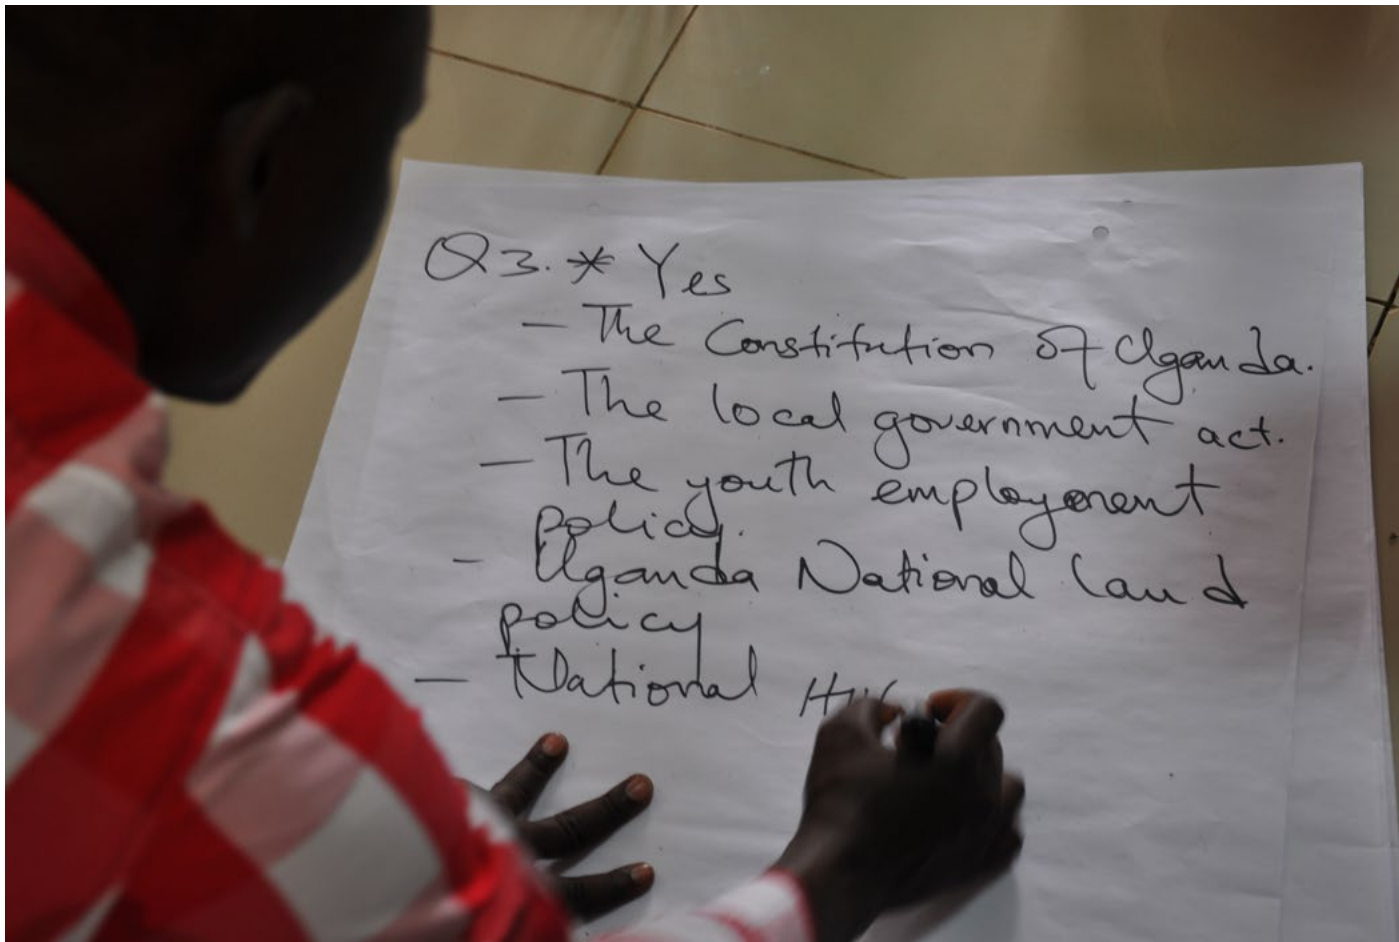 Q3. * Yes
– The Constitution of Uganda.
– The local government act.
– The youth employment
policy.
– Uganda National land
policy
– National